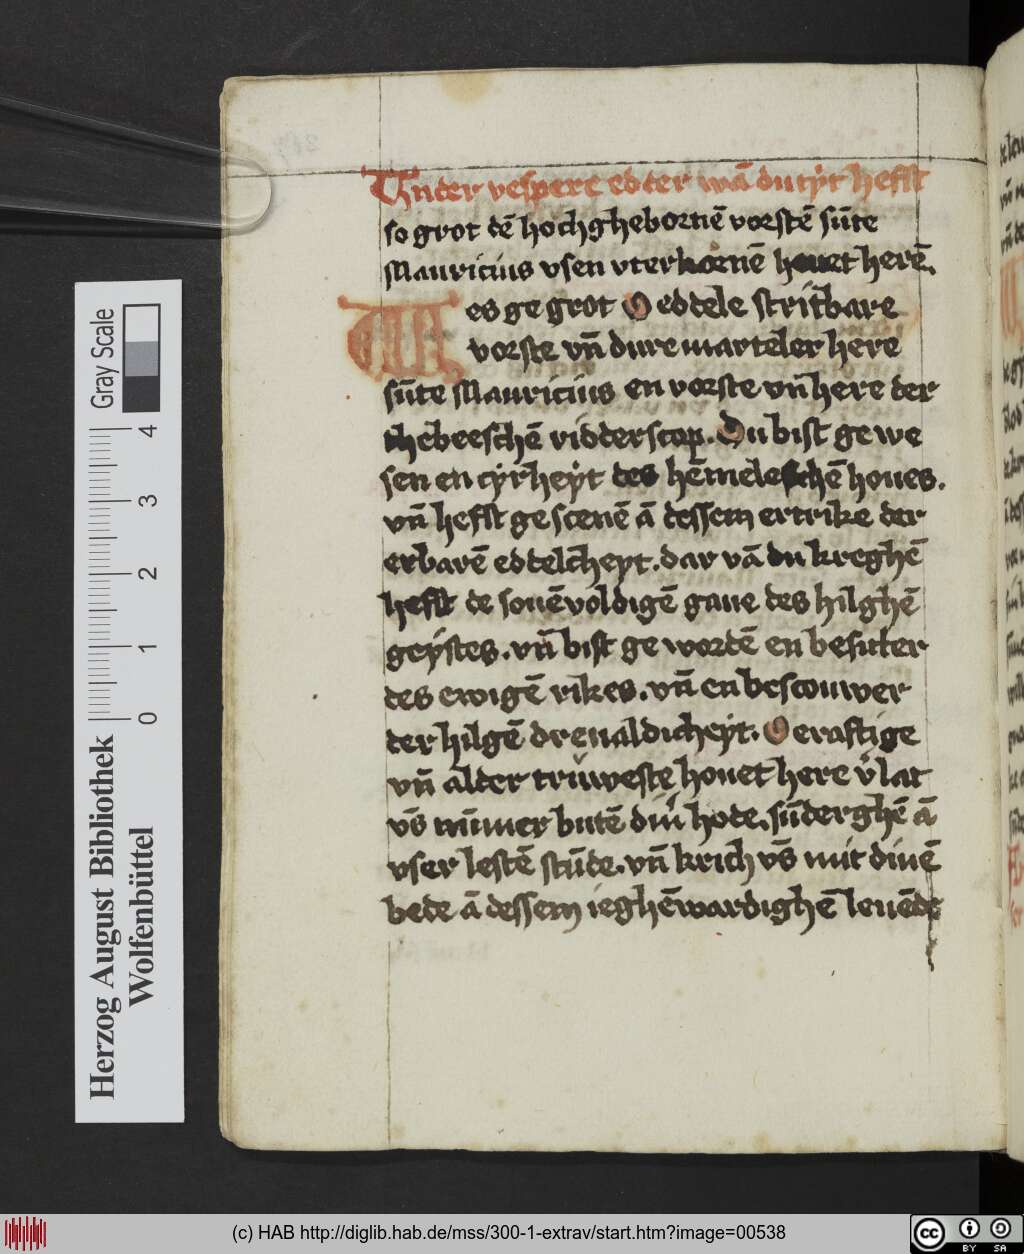 Under vespere edder wā du tyt hefft
so grot dē hochghebornē vorstē sūte
Mauricius vsen vterkornē houet herē.
Wes ge grot O eddele stritbare
vorste vn̄ dure marteler here
sūte Mauricius en vorste vn̄ here der
thebeeschē ridderscop. Du bist ge we
sen en cyrheyt des hēmeleschē houes.
vn̄ hefft ge scenē ā dessem ertrike der
erbarē eddelcheyt. dar vā du kreghē
hefft de souēvoldigē gaue des hilghē
geystes. vn̄ bist ge wordē en besitter
des ewigē rikes. vn̄ en bescouwer
der hilgē dreualdicheyt. O craftige
vn̄ alder truweste houet here vlat
vs̄ nūmer butē din̄ hode. sūderghē ā
vser lestē stūde. vn̄ krich vs̄ mit dinē
bede ā dessem ieghēwardighē leuēde
Herzog August Bibliothek
Wolfenbüttel
0 1 2 3 4
Gray Scale
(c) HAB http://diglib.hab.de/mss/300-1-extrav/start.htm?image=00538
cc BY SA